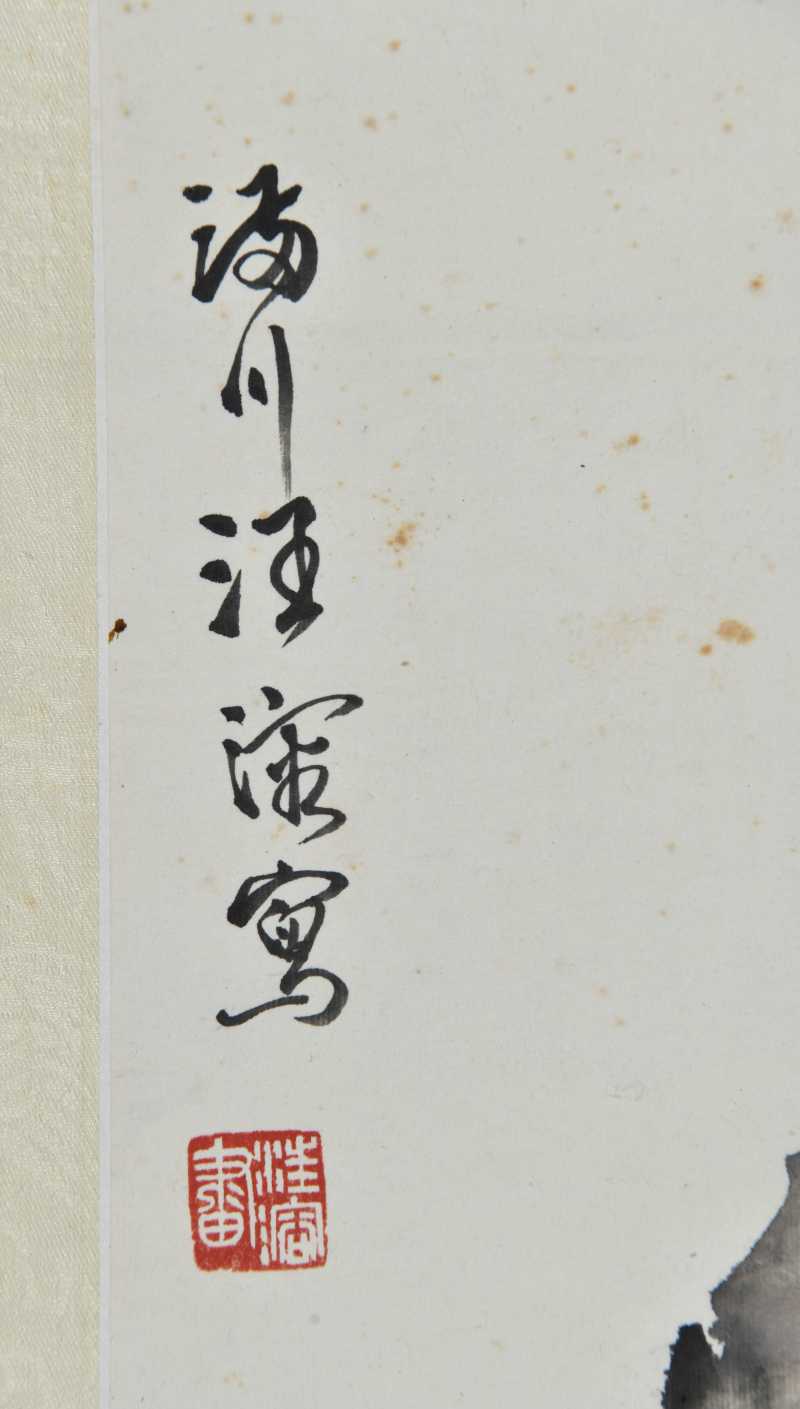 川汪溶寫
汪溶畫